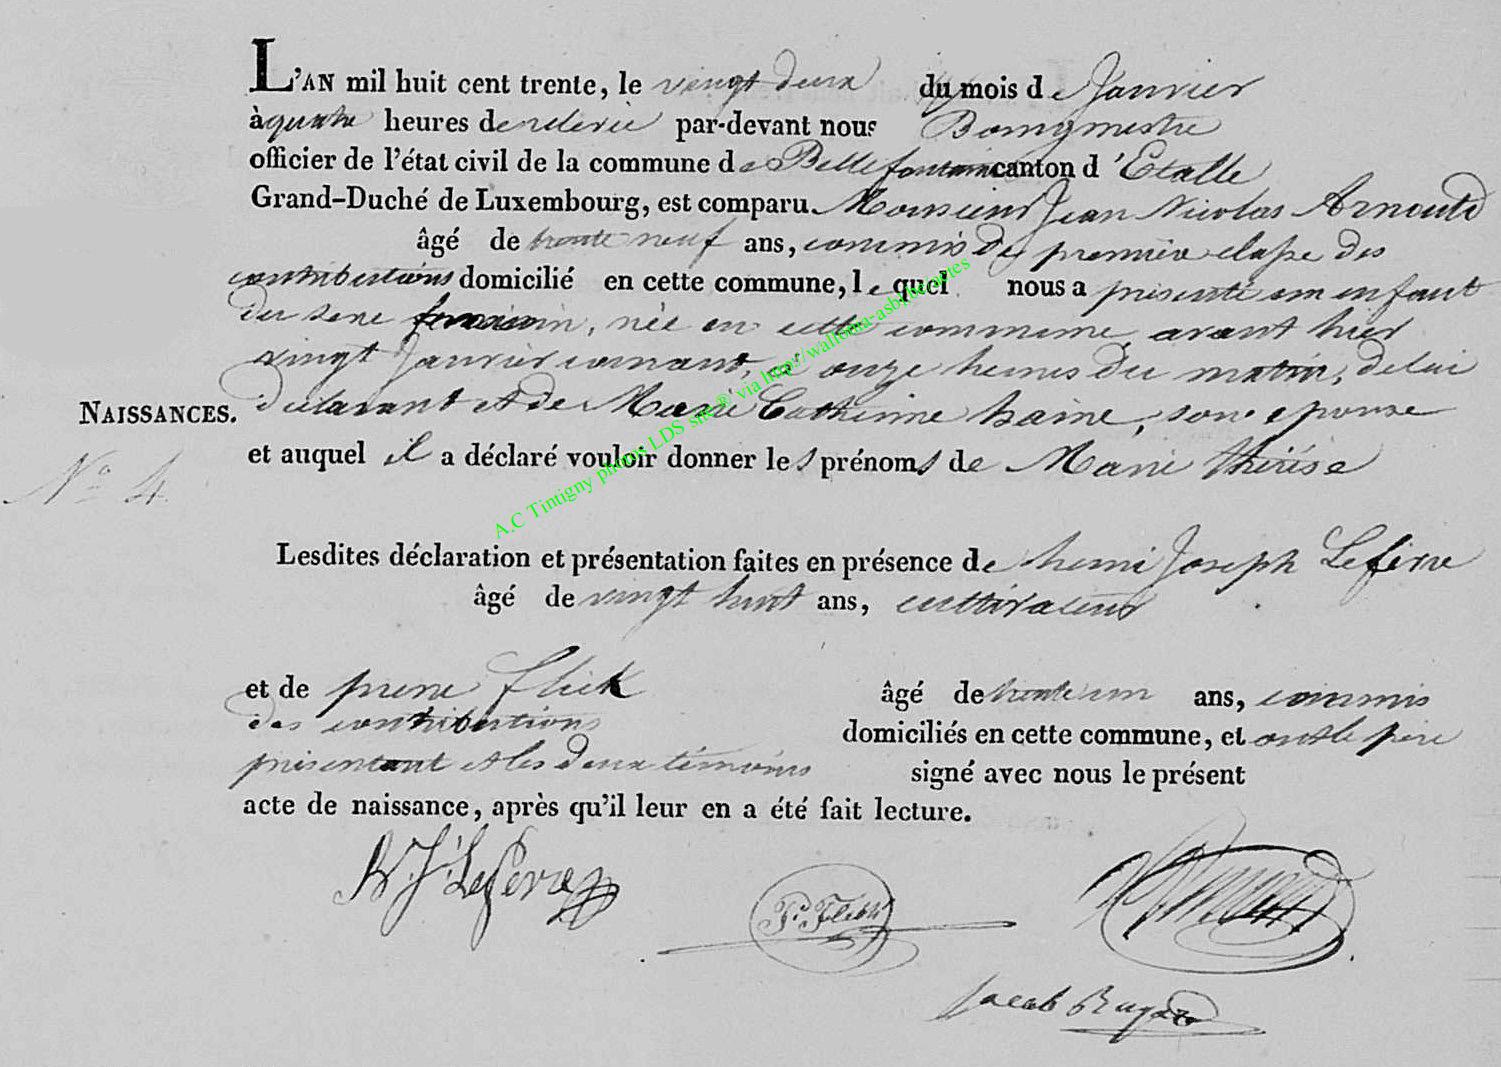 L'AN mil huit cent trente, le vingt deux du mois de Janvier
à quatre heures de relevée par-devant nous Bourgmestre
officier de l'état civil de la commune de Bellefontaine canton d'Etalle
Grand-Duché de Luxembourg, est comparu Monsieur Jean Nicolas Arnould
âgé de trente neuf ans, commis de première classe des
contributions domicilié en cette commune, lequel nous a présenté un enfant
du sexe féminin, née en cette commune, avant hier
vingt Janvier courant, à onze heures du matin, de lui
déclarant et de Marie Catherine haine, son epouse
NAISSANCES.
et auquel il a déclaré vouloir donner les prénoms de Marie thérèse
N° 4
Lesdites déclaration et présentation faites en présence de henri Joseph Lefevre
âgé de vingt huit ans, cultivateur
et de pierre flick âgé de trente un ans, commis
des contributions domiciliés en cette commune, et ont le père
présentant et les deux témoins signé avec nous le présent
acte de naissance, après qu'il leur en a été fait lecture.
H. J. Lefevre
P. Flick
Jacob
A.C Tintigny photos LDS site® via http://wallonia-asbl.be/actes